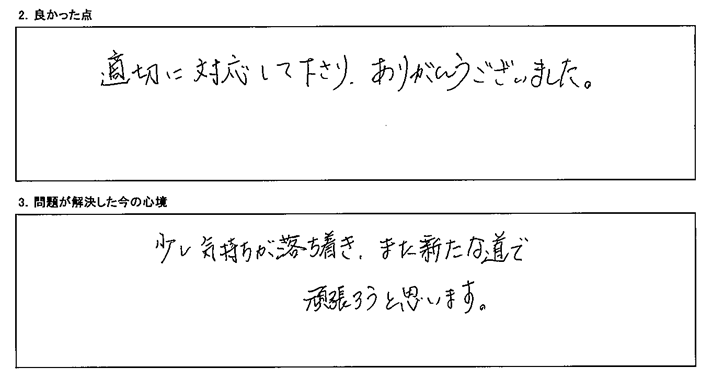 2. 良かった点
適切に対応して下さり、ありがとうございました。
3. 問題が解決した今の心境
少し気持ちが落ち着き、また新たな道で
頑張ろうと思います。